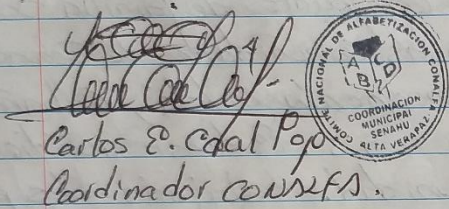 Carlos E. Caal Pop
Coordinador CONALFA.
COMITE NACIONAL DE ALFABETIZACION CONALFA
A B C D
COORDINACION
MUNICIPAL
SENAHU
ALTA VERAPAZ